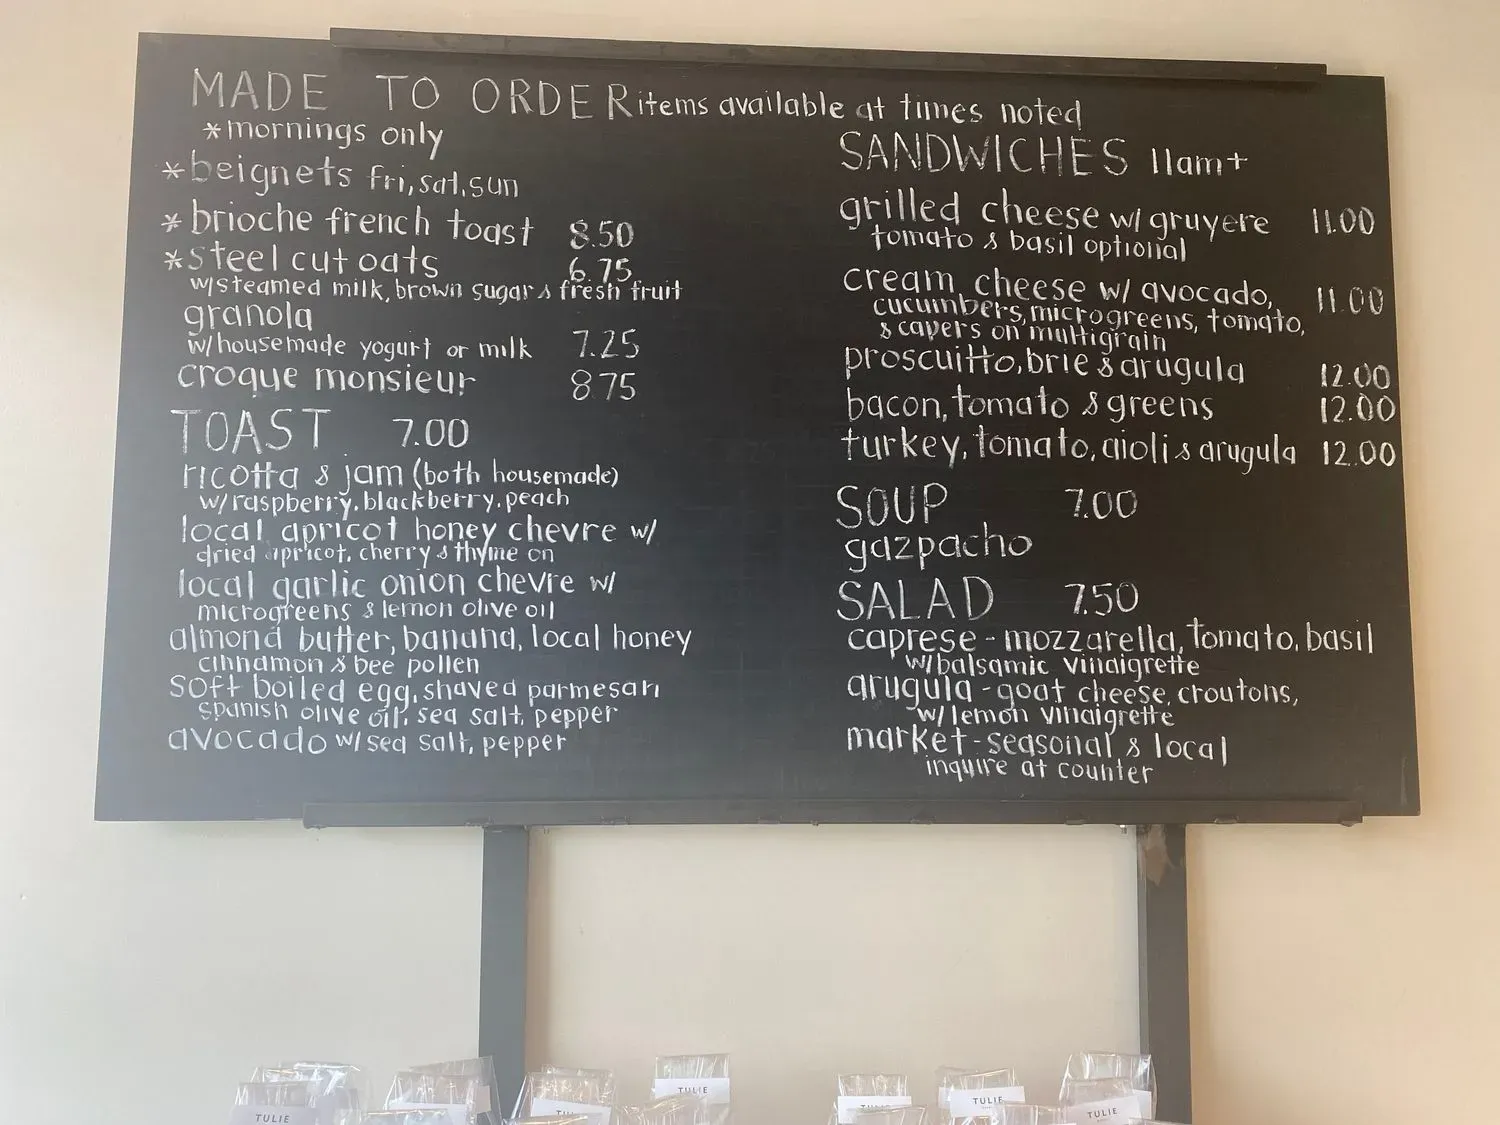 MADE TO ORDER items available at times noted
*mornings only
*beignets fri, sat, sun
*brioche french toast 8.50
*steel cut oats 6.75
w/steamed milk, brown sugar & fresh fruit
granola
w/housemade yogurt or milk 7.25
croque monsieur 8.75
TOAST 7.00
ricotta & jam (both housemade)
w/raspberry, blackberry, peach
local apricot honey chevre w/
dried apricot, cherry & thyme on
local garlic onion chevre w/
microgreens & lemon olive oil
almond butter, banana, local honey
cinnamon & bee pollen
soft boiled egg, shaved parmesan
spanish olive oil, sea salt, pepper
avocado w/sea salt, pepper
SANDWICHES 11am+
grilled cheese w/ gruyere 11.00
tomato & basil optional
cream cheese w/ avocado, 11.00
cucumbers, microgreens, tomato,
& capers on multigrain
proscuitto, brie & arugula 12.00
bacon, tomato & greens 12.00
turkey, tomato, aioli & arugula 12.00
SOUP 7.00
gazpacho
SALAD 7.50
caprese - mozzarella, tomato, basil
w/balsamic vinaigrette
arugula - goat cheese, croutons,
w/lemon vinaigrette
market - seasonal & local
inquire at counter
TULIE
TULIE
TULIE
TULIE